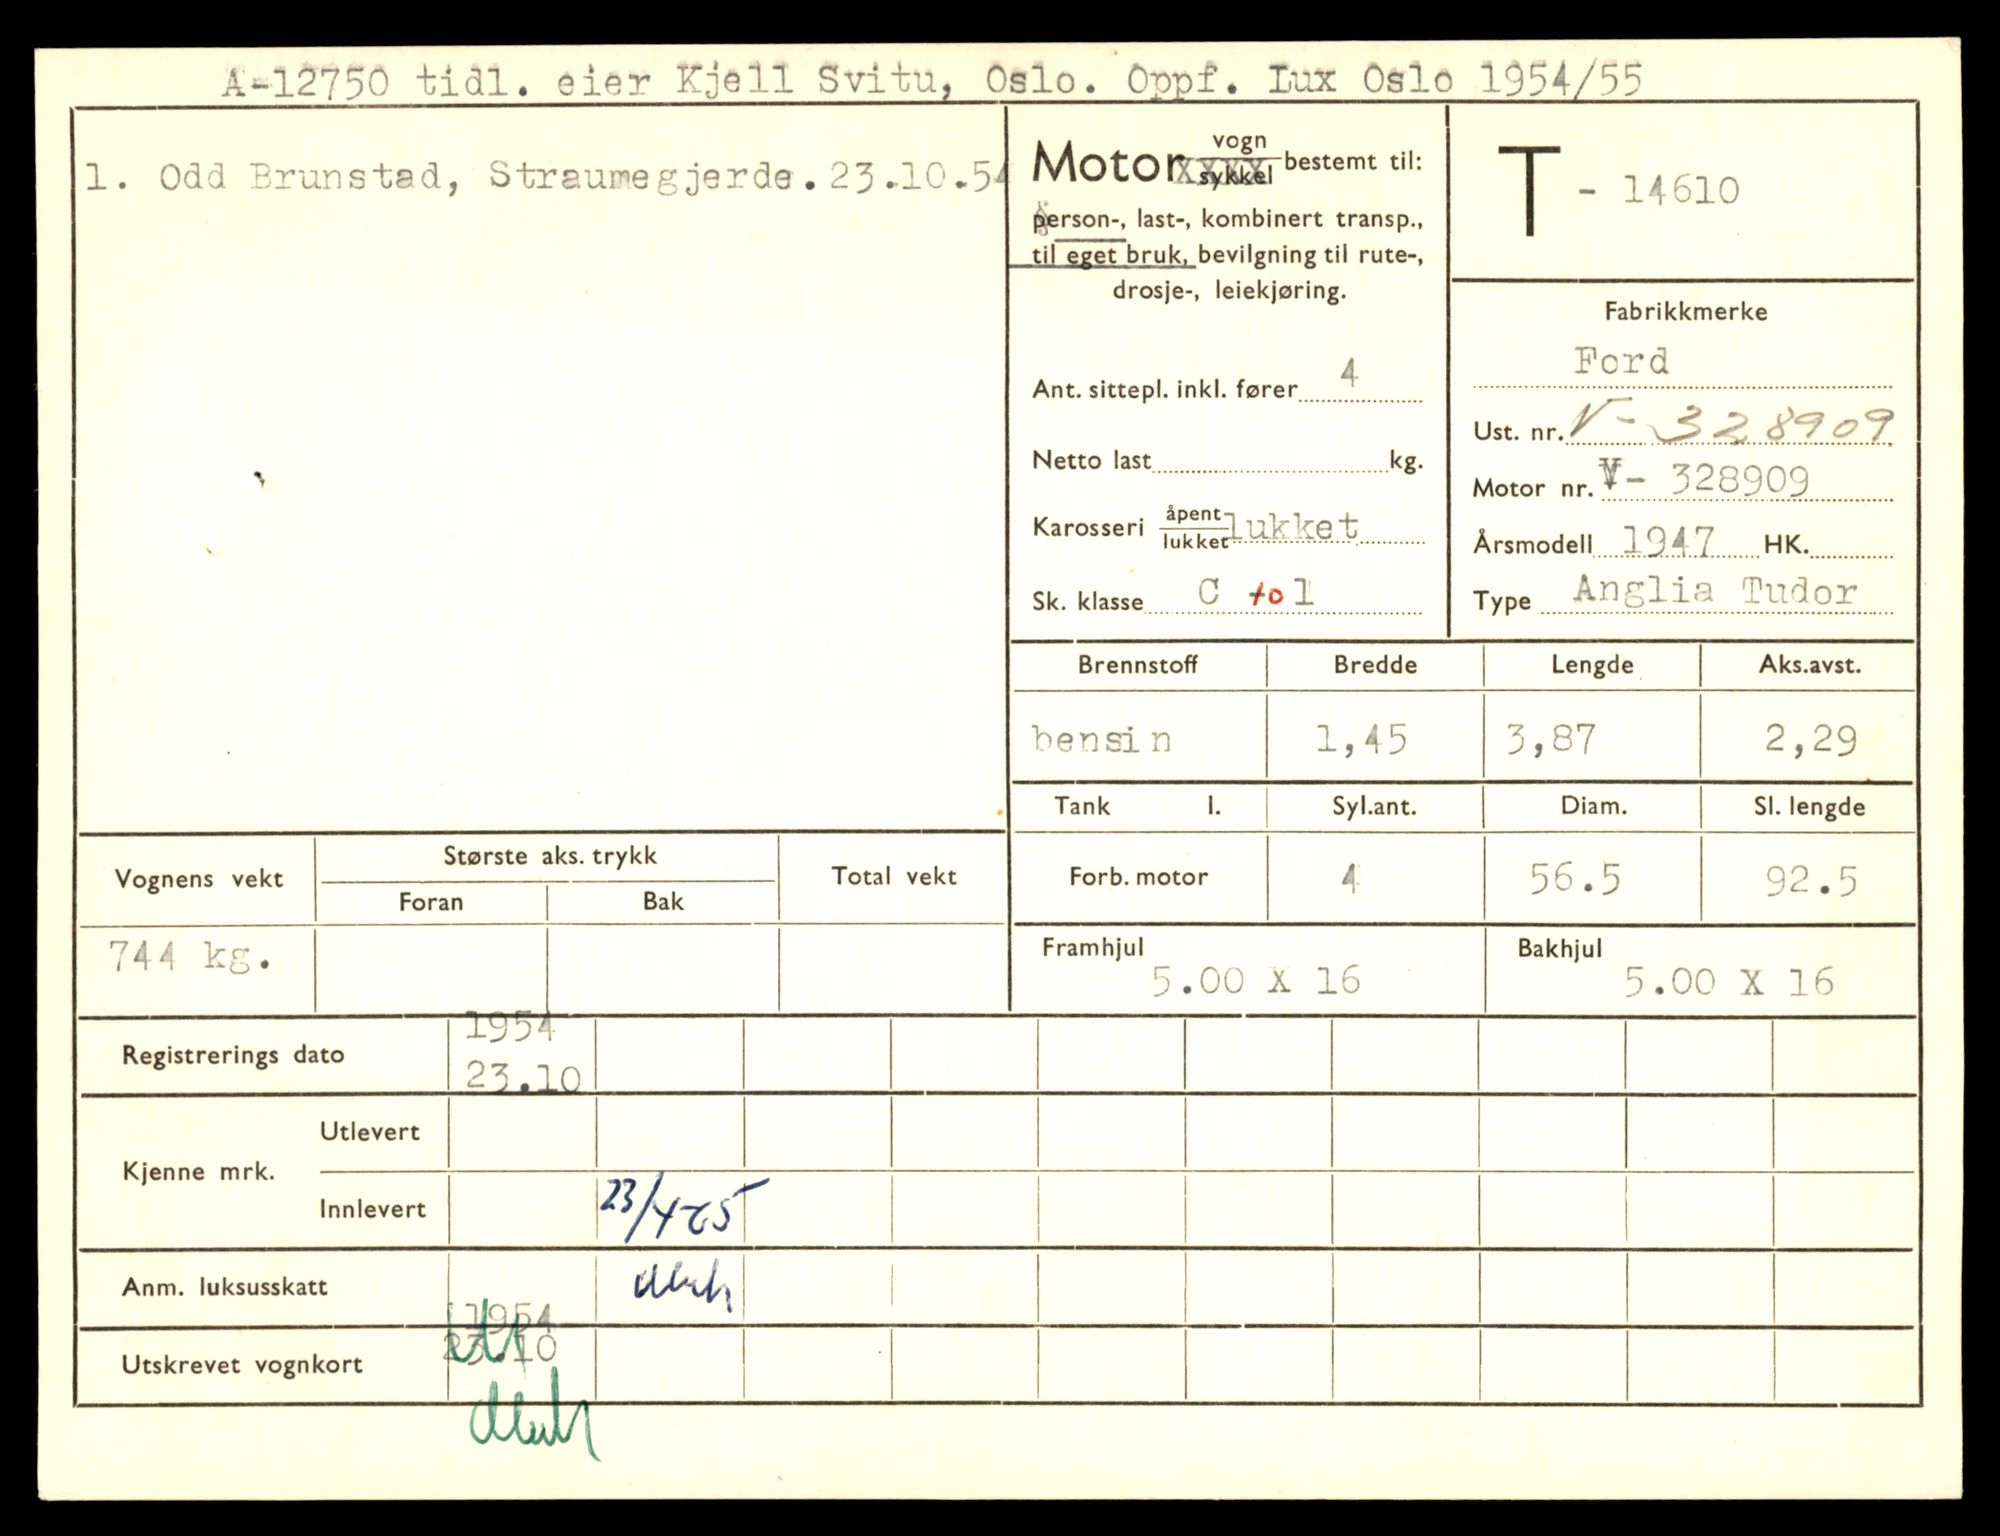 A-12750 tidl. eier Kjell Svitu, Oslo. Oppf. Lux Oslo 1954/55
1. Odd Brunstad, Straumegjerde. 23.10.54
Motor vogn
sykkel bestemt til:
person-, last-, kombinert transp.,
til eget bruk, bevilgning til rute-,
drosje-, leiekjøring.
Ant. sittepl. inkl. fører 4
Netto last kg.
Karosseri åpent
lukket lukket
Sk. klasse C 10 1
T - 14610
Fabrikkmerke
Ford
Ust. nr. V - 328909
Motor nr. V - 328909
Årsmodell 1947 HK.
Type Anglia Tudor
Brennstoff Bredde Lengde Aks.avst.
bensin 1,45 3,87 2,29
Tank l. Syl.ant. Diam. Sl. lengde
Forb. motor 4 56.5 92.5
Framhjul Bakhjul
5.00 X 16 5.00 X 16
Vognens vekt Største aks. trykk Total vekt
Foran Bak
744 kg.
Registrerings dato 1954
23.10
Kjenne mrk. Utlevert
Innlevert 23/4-65
Anm. luksusskatt
Utskrevet vognkort 1954
23.10